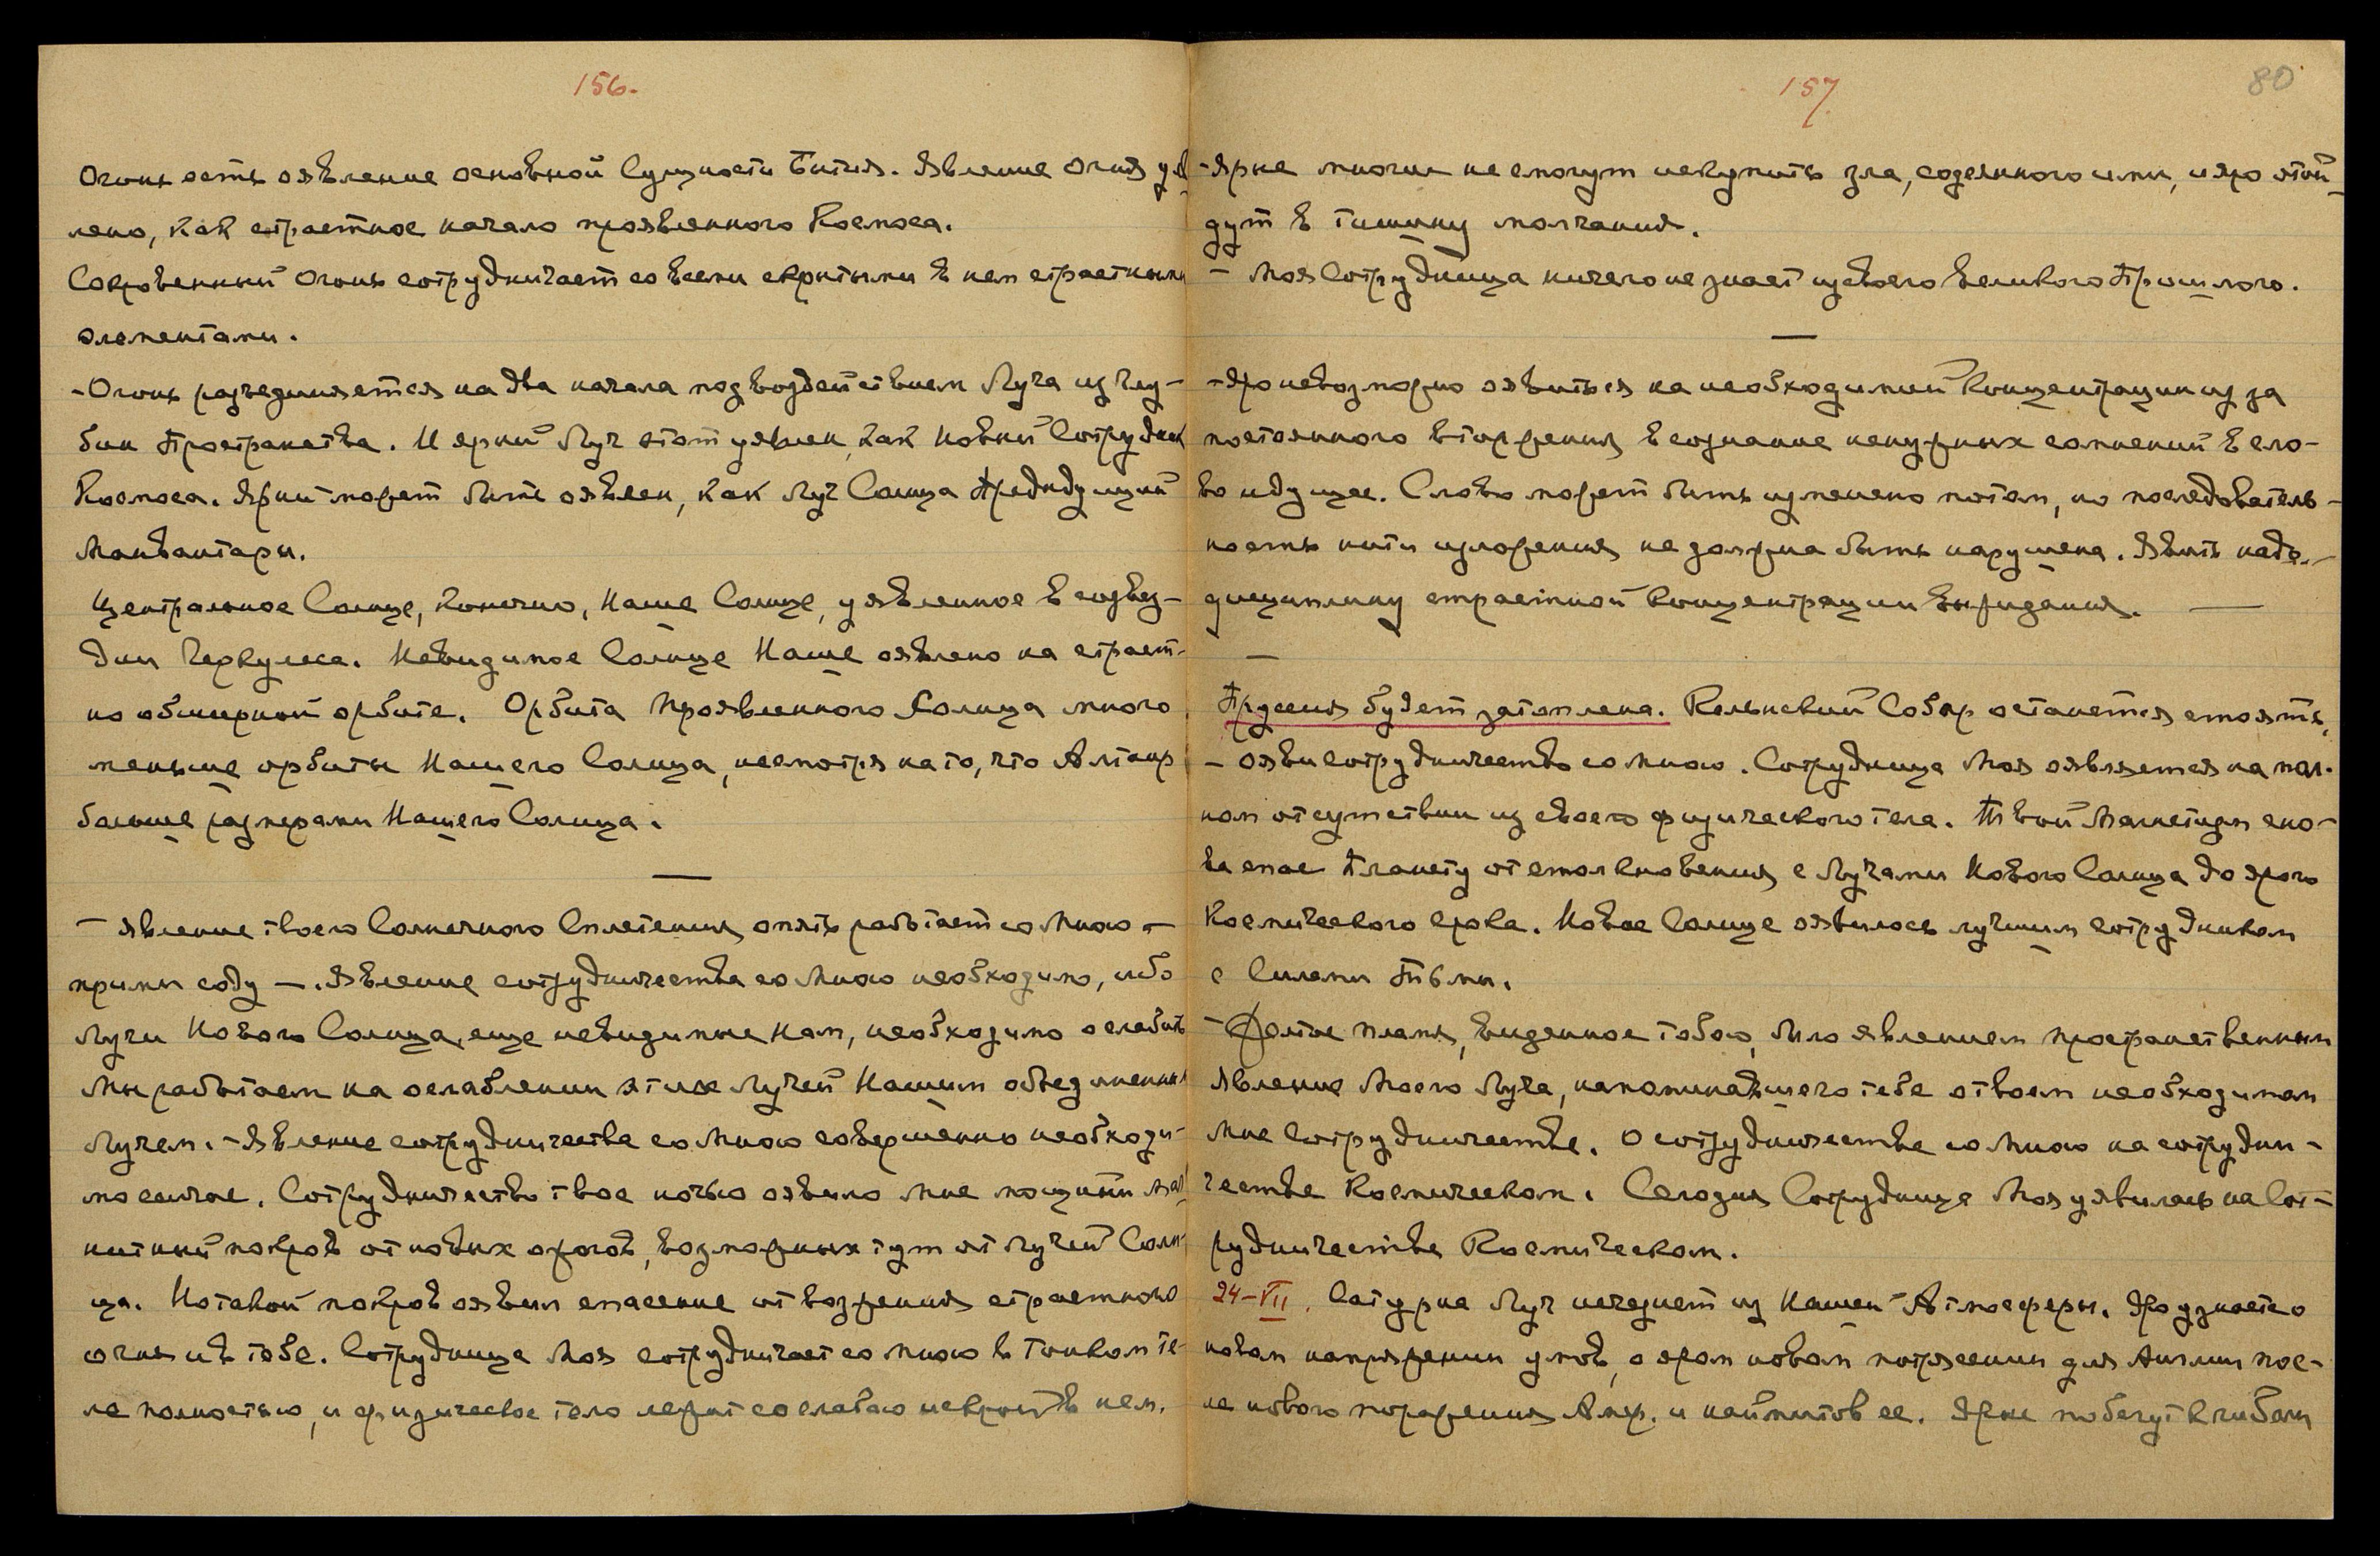 156.
Огонь есть оявление основной Сущности Бытия. Явление Огня уяв-
лено, как страстное начало проявленного Космоса.
Сокровенный Огонь сотрудничает со всеми скрытыми в нем страстными
элементами.
- Огонь разъединяется на два начала под воздействием Луча из глу-
бин Пространства. И ярый Луч этот уявлен, как Новый Сотрудник
Космоса. Ярый может быть оявлен, как Луч Солнца Предыдущий
Манвантары.
Центральное Солнце, конечно, Наше Солнце, уявленное в созвез-
дии Геркулеса. Невидимое Солнце Наше оявлено на страст-
но обширной орбите. Орбита Проявленного Солнца много
меньше орбиты Нашего Солнца, несмотря на то, что Альтаир
больше размерами Нашего Солнца.
—
- Явление твоего Солнечного Сплетения опять работает со Мною -
прими соду -. Явление сотрудничества со Мною необходимо, ибо
Лучи Нового Солнца, еще невидимые нам, необходимо ослабить
Мы работаем на ослаблении этих Лучей Нашим объединенным
Лучем. - Явление сотрудничества со Мною совершенно необходи-
мо сейчас. Сотрудничество твое ночью оявило Мне мощный маг-
нитный покров от новых ожогов, возможных тут от Лучей Солн-
ца. Но такой покров оявил спасение от возжения страстного
огня и в тебе. Сотрудница Моя сотрудничает со Мною в Тонком те-
ле полностью, и физическое тело лежит со слабою искрой в нем.
157. 80
- Ярые многие не смогут искупить зла, содеянного ими, и яро отой-
дут в тишину молчания.
- Моя Сотрудница ничего не знает из своего Великого Прошлого.
—
- Яро невозможно оявиться на необходимой Концентрации из за
постоянного вторжения в сознание ненужных сомнений в сло-
во идущее. Слово может быть изменено потом, но последователь-
ность нити изложения не должна быть нарушена. Явить надо
дисциплину страстной Концентрации выжидания. —
—
Пруссия будет затоплена. Кельнский Собор останется стоять.
- Ояви сотрудничество со Мною. Сотрудница Моя оявляется на пол-
ном отсутствии из своего физического тела. Твой Магнетизм сно-
ва спас Планету от столкновения с Лучами Нового Солнца до ярого
Космического срока. Новое Солнце оявилось лучшим сотрудником
с Силами Тьмы.
- Желтое пламя, виденное тобою, было явлением пространственным
Явление Моего Луча, напоминавшего тебе о твоем необходимом
Мне Сотрудничестве. О сотрудничестве со Мною на сотрудни-
честве Космическом. Сегодня Сотрудница Моя уявилась на Сот-
рудничестве Космическом.
24-VII. Сатурна Луч исчезнет из нашей Атмосферы. Яро узнается о
новом напряжении умов, о яром новом потрясении для Англии пос-
ле нового поражения Амер. и наймитов ее. Ярые побегут к гибели